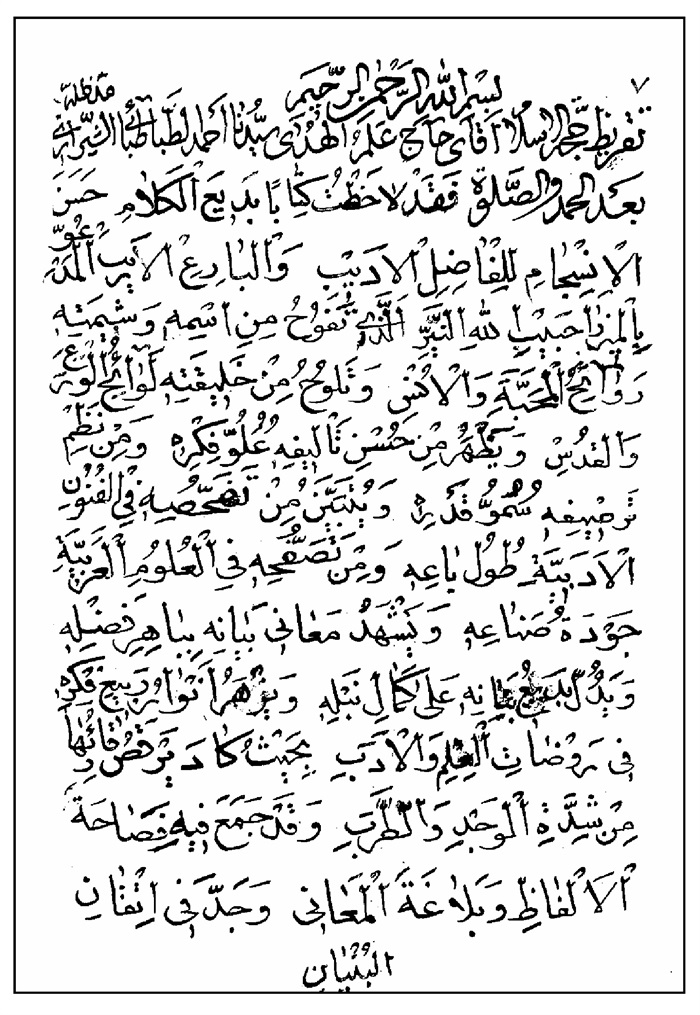 ٧
بسم الله الرحمن الرحیم
تقریظ حجة الاسلام آقای حاج علم الهدی سیدنا احمد الطباطبائی الشیرازی مدظله
بعد الحمد والصلوة فقد لاحظت کتابا بدیع الکلام حسن
الانسجام للفاضل الادیب والبارع الاریب المدعو
بالمیرزا حبیب الله النیر الذی تفوح من اسمه وشیمته
روائح المحبة والانس وتلوح من خلیقته لوائح الورع
والقدس ویظهر من حسن تألیفه علو فکره ومن نظم
ترصیفه سمو قدره ویتبین من تفحصه فی الفنون
الادبیة طول باعه ومن تصفحه فی العلوم العربیة
جودة صناعه ویشهد معانی بیانه بباهر فضله
ویدل بدیع بیانه علی کمال نبله ویزهر انوار ربیع فکره
فی روضات العلم والادب بحیث کاد یرقص وقائها
من شدة الوجد والطرب وقد جمع فیه فصاحة
الالفاظ وبلاغة المعانی وجد فی اتقان
البنیان